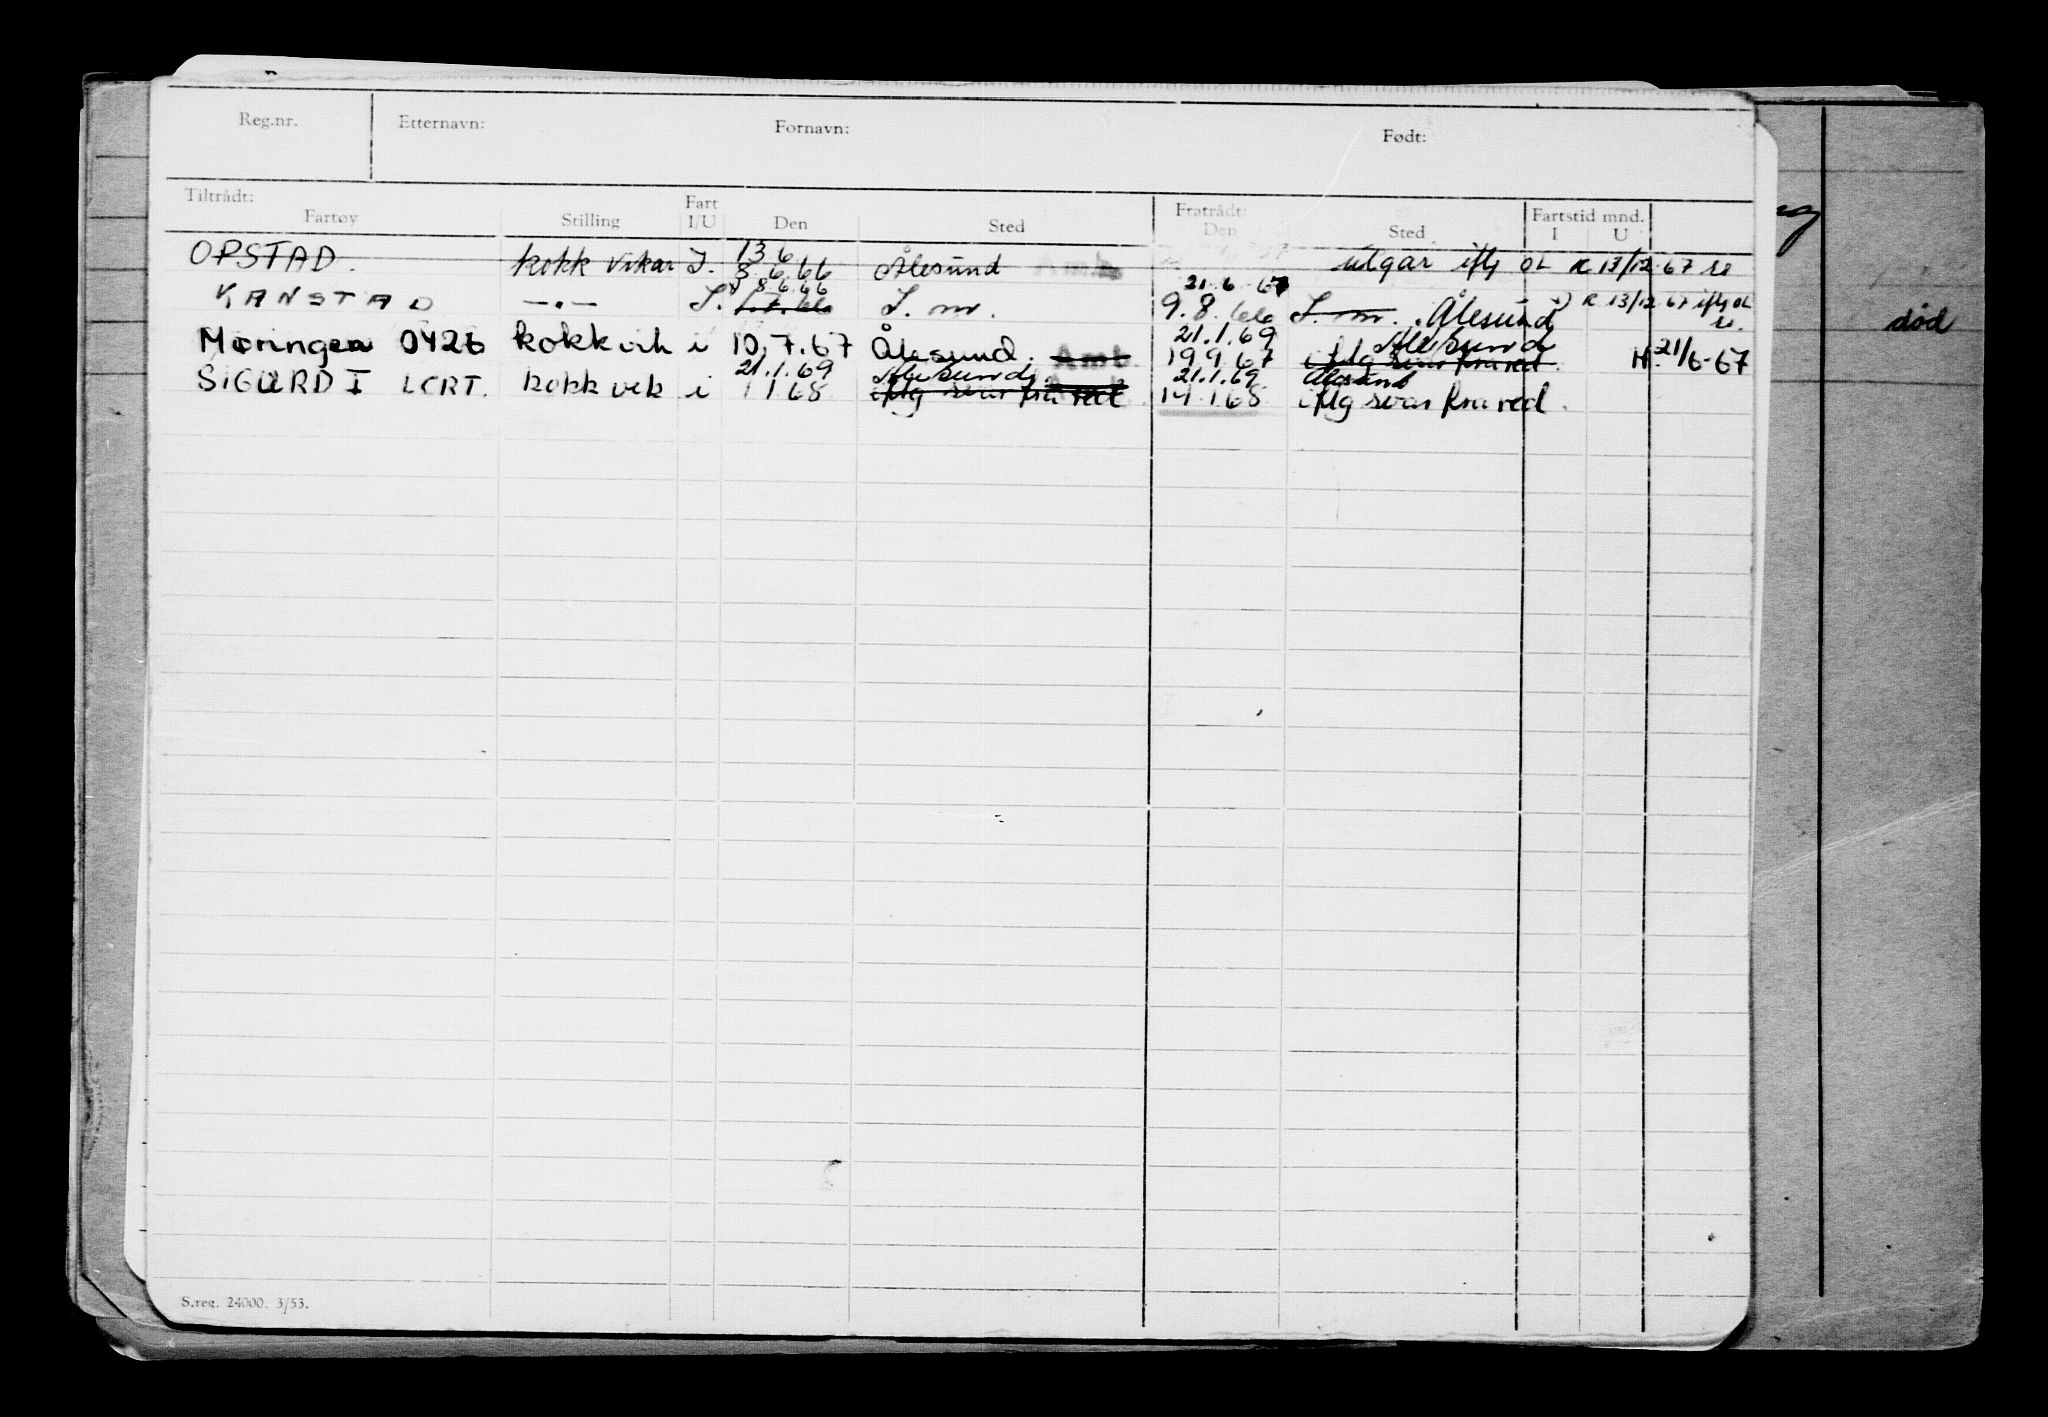 Reg.nr. Etternavn: Fornavn: Født:
Tiltrådt: Fart Fratrådt: Fartstid mnd.
Fartøy Stilling I/U Den Sted Den Sted I U
13 6
OPSTAD. kokk vikar I. 8.6.66 Ålesund Amb. utgår iflg OL R 13/12-67
8.6.66 21.6.67
KANSTAD —"— I. S. m. 9.8.66 S. m. Ålesund R 13/12 67 iflg OL
21.1.69 Ålesund
Møringen 0426 kokk vik i 10.7.67 Ålesund. Amb. 19.9.67 iflg svar fra red. H. 21/6-67
21.1.69 Ålesund 21.1.69 Ålesund
SIGURD I LCRT. kokk vik i 1 1 68 iflg svar fra red 14.1.68 iflg svar fra red.
død
S.reg. 24000. 3/53.